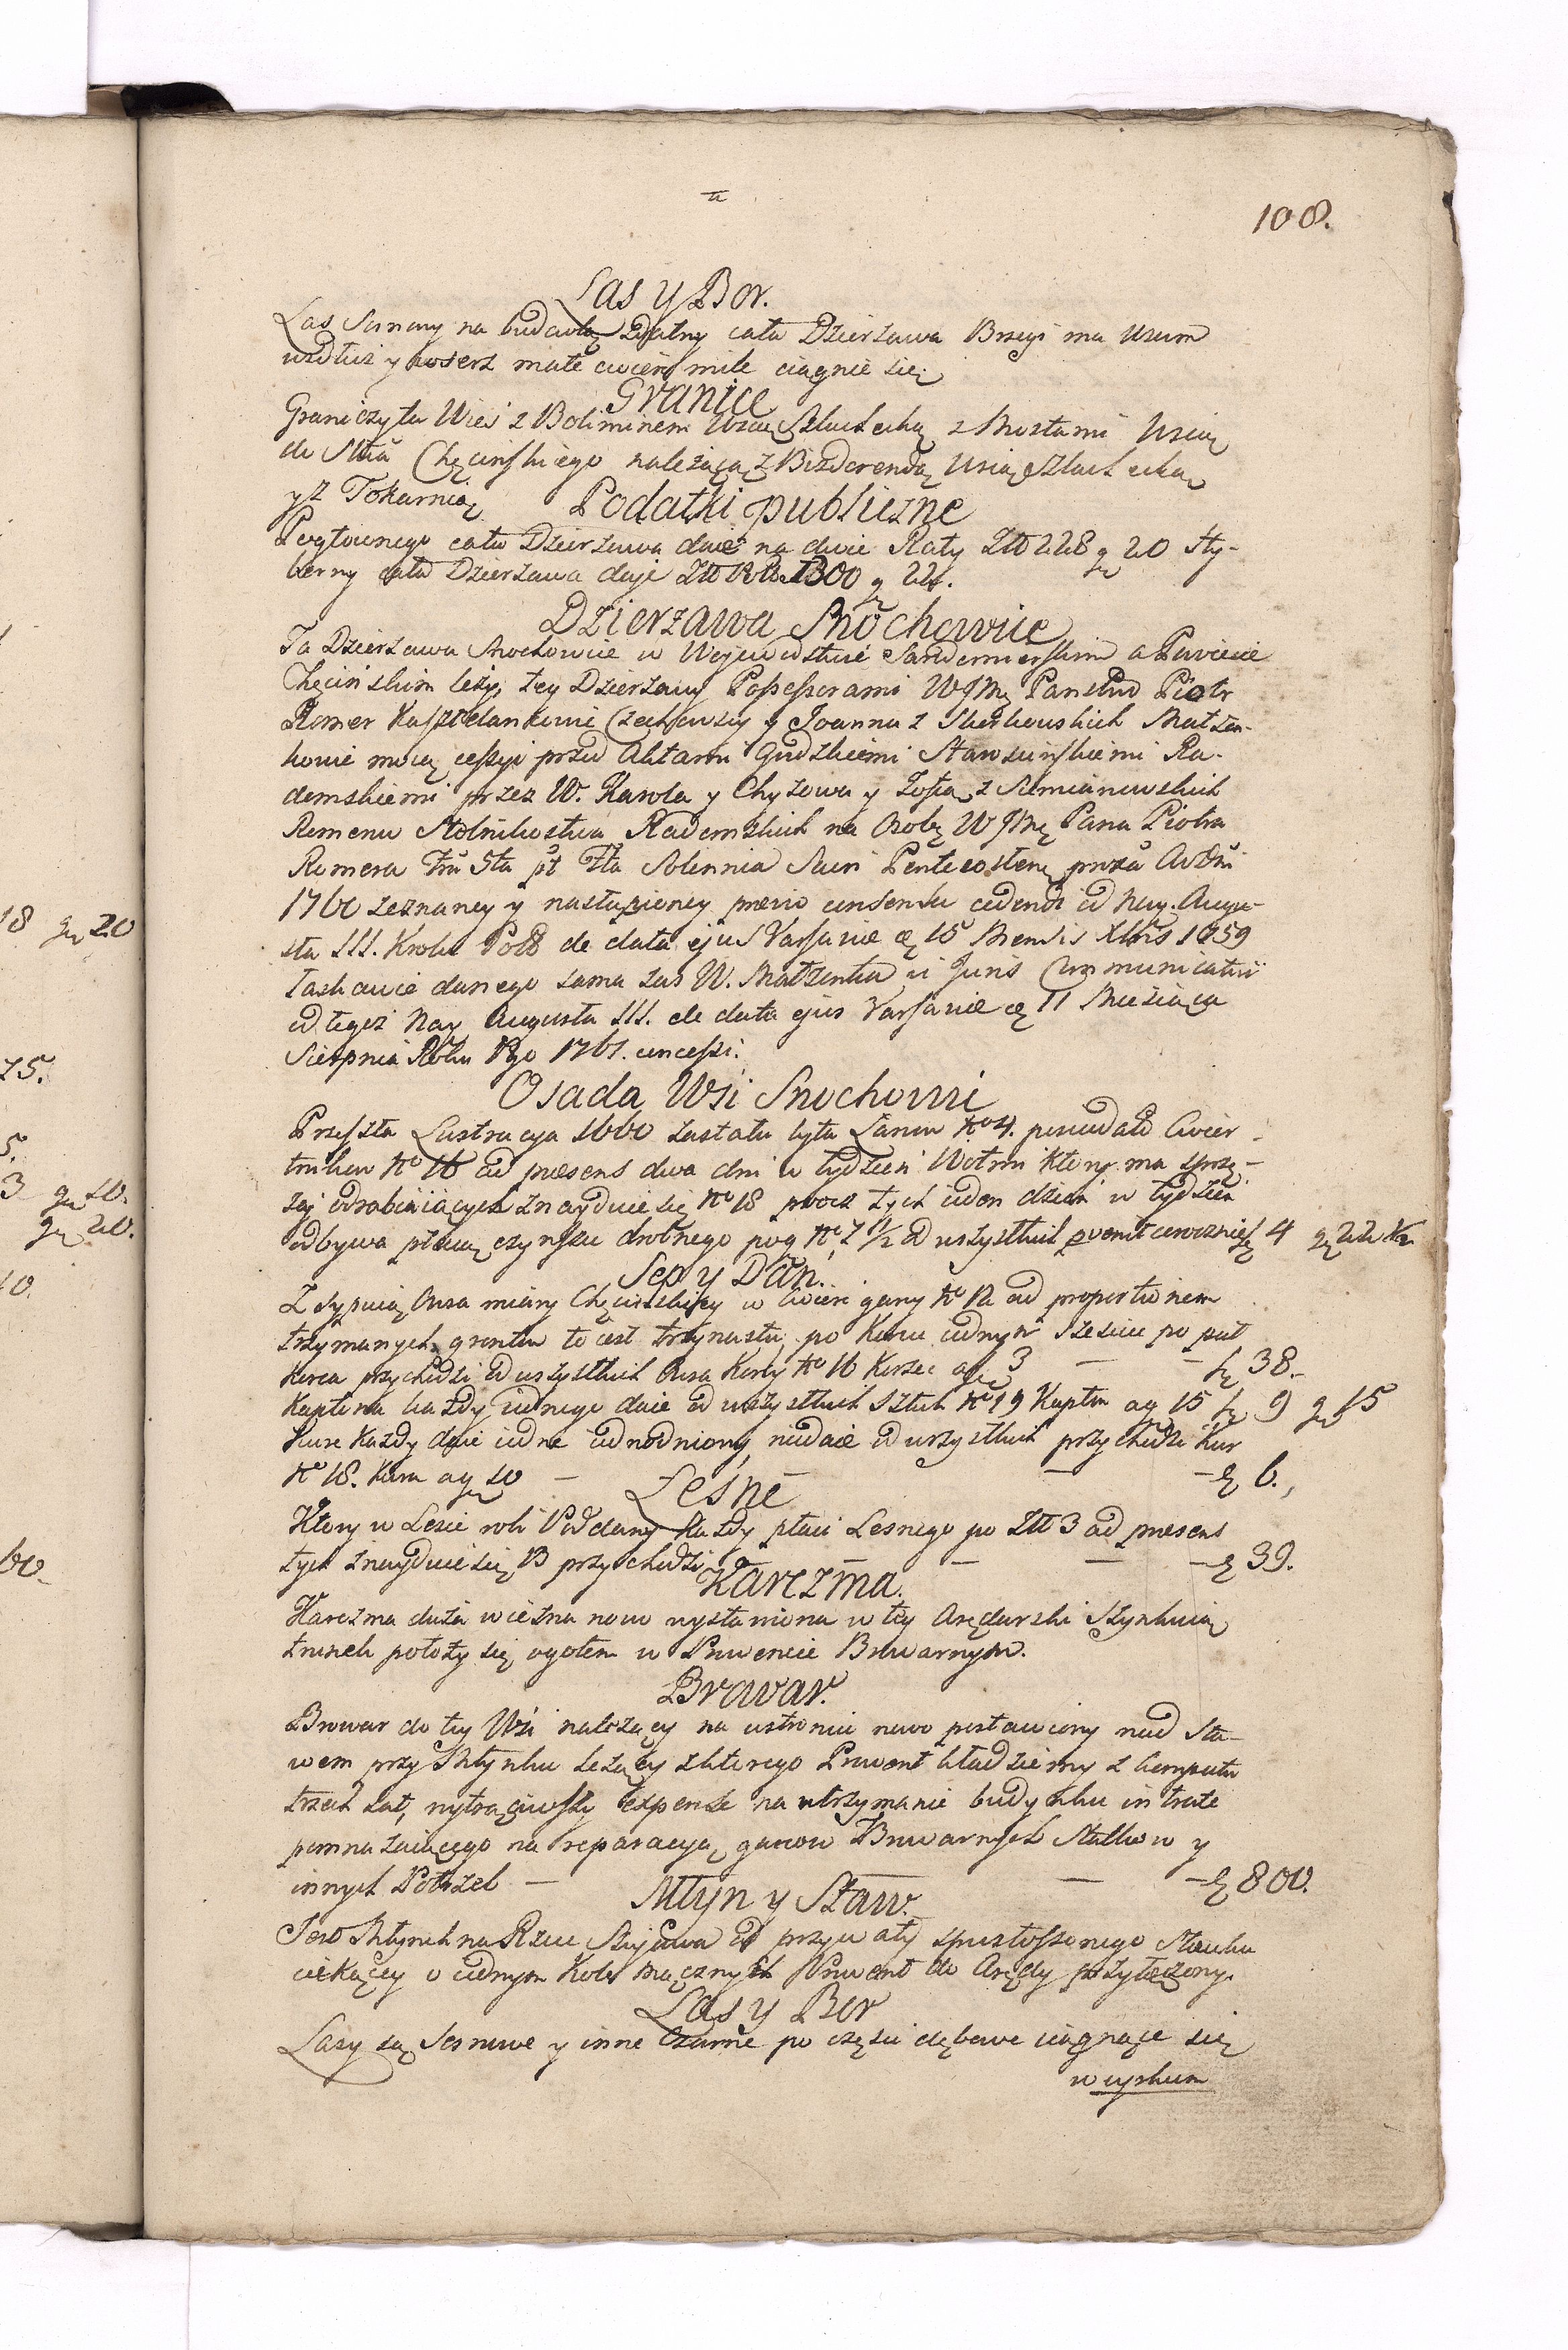 108.
Las y Bor.
Las Sosnowy na budowlą zdatny cała Dzierzawa Brzegi ma Usum
wzdłuż y wszerz małe cwierć mile ciągnie się
Granice
Graniczy ta Wieś z Boliminem Wsią Szlachecką z Mostami Wsią
do Sttā Chęcinskiego należącą z Bizdorendą Wsią Szlachecką
y z Tokarnią Podatki publiczne
Pogłownego cała Dzierzawa daie na dwie Raty Złł 228 g 20 Hy-
berny cała Dzierzawa daje Złł 1300 g 22.
Dzierzawa Snochowice
Ta Dzierzawa Snochowice w Wojewodstwie Sandomierskim a Powiecie
Chęcinskim leży, tey Dzierzawy Possessorami WJMę Państwo Piotr
Romer Kasztelankowie Czechowscy y Joanna z Skorkowskich Małżon-
kowie mocą cessyi przed Aktami Grodzkiemi Starościńskiemi Ra-
domskiemi przez W. Karola y Chyzowa y Zofią z Siemianowskich
Romerow Stolnikostwa Radomskich na Osobę WJMę Pana Piotra
Romera Fřa Sta pt Fta Solennia Sacri Pentecostem proxā Aō Dni
1760 zeznaney y nastąpioney prævio consensu cedendi od Nay. Augu-
sta III. Krola Polš de data ejus Varsaviæ 15 Mensis Xbris 1759
łaskawie danego sama zas W. Małzonka vi Juris Communicativi
od tegoż Nay Augusta III. de data ejus Varsaviæ 11 Miesiąca
Sierpnia Roku Pgo 1761. concessi.
Osada Wsi Snochowic
Przeszła Lustracya 1660 zastała tyło Łanow No 4. posiadało Cwier-
tnikow No 16 ad præsens dwa dni w tydzień Wołmi ktory ma sprzę-
żaj odrabiaiących znayduie się No 18 procz tych ieden dzień w tydzień
odbywa płacą czynszu drobnego po g No 7 1/2 od wszystkich prowent coroczniesz f 4 g 22 1/2
Sep y Dań.
Zsypuią Owsa miary Chęcinskiey w Cwierć gary No 12 ad proportionem
trzymanych gruntow to iest trzynastu po Korcu iednym szesciu po puł
Korca przychodzi od wszystkich Owsa Korcy No 16 Korzec a f 3 — — f 38.
Kapłona każdy iednego daie od wszystkich Sztuk No 19 Kapłon a g 15 f 9 g 15
Kure każdy daie iedne ieden niedaie od wszystkich przychodzi Kur
No 18. Kura a g 10 — — — f 6.
Leśne
Ktory w Lesie robi Poddany Kazdy płaci Lesnego po Złł 3 ad præsens
tych znayduie się 13 przychodzi — — — f 39.
Karczma.
Karczma duża wiezna nowo wystawiona w tey Arędarski szynkuią
trunek położy się ogołem w Prowencie Browarnym.
Browar.
Browar do tey Wsi należący na ustroniu nowo postawiony nad Sta-
wem przy Młynku leżący z ktorego Prowent kładziemy z komputu
trzech Lat, wytrąciwszy expense na utrzymanie budynku intrate
pomnazaiącego na reparacyą garcow Browarnych Statkow y
innych Potrzeb — — — f 800.
Młyn y Staw.
Jest Młynek na Rzece od przyuały spustoszonego Stawku
ciekącey o iednym Kole mącznych Prowent do Arędy przyłączony.
Las y Bor
Lasy są Sosnowe y inne Czarne po części dębowe ciągnące się
w uyskum
18 gr 20
75.
5.
3 gr 10.
gr 20.
10.
60.